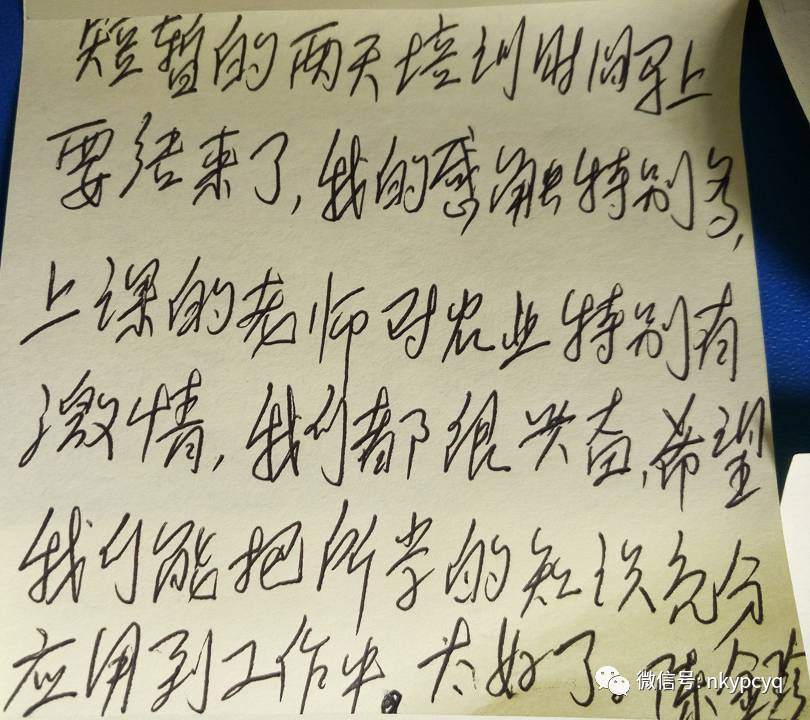 短暂的两天培训时间马上
要结束了,我的感触特别多,
上课的老师对农业特别有
激情,我们都很兴奋,希望
我们能把所学的知识充分
应用到工作中。太好了。陈金
微信号: nkypcyq